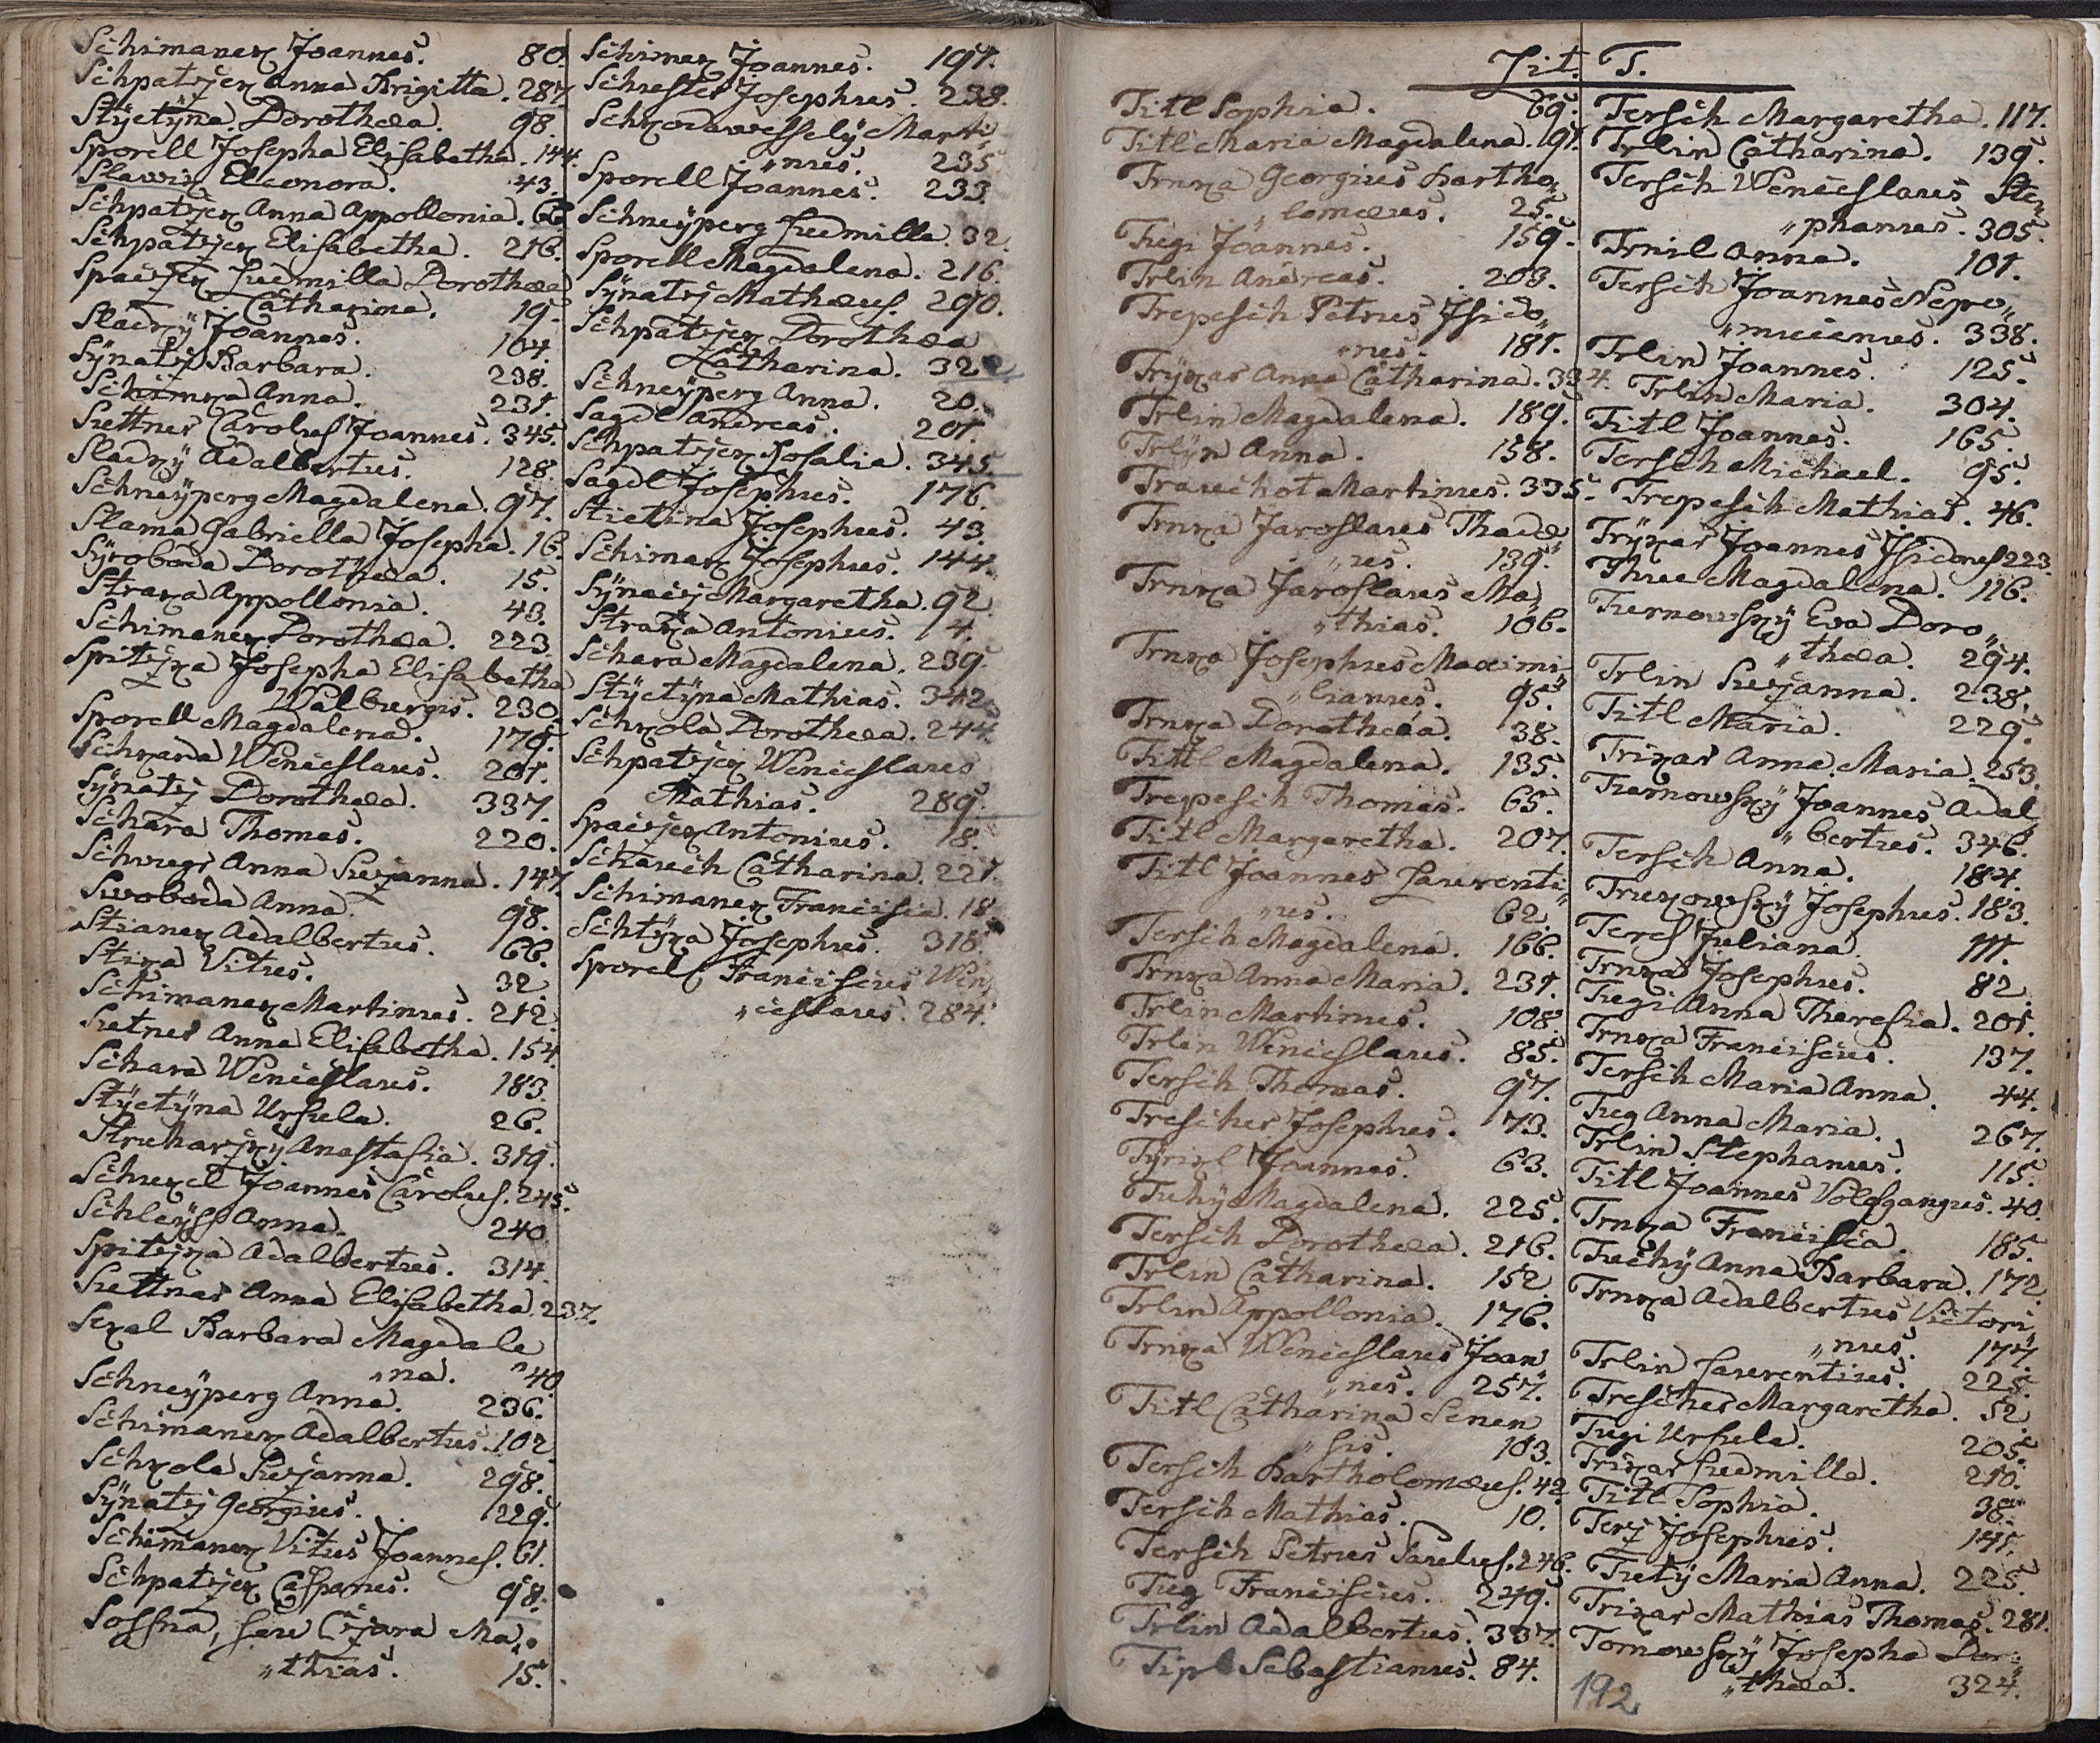 Schimanek Joannes. 80.
Schpatzjek Anna Brigitta. 287
Stÿctÿna Dorothea. 98.
Sporell Josepha Elisabetha. 144.
Slawik Eleonora. 43.
Schpatzjek Anna Appollonia. 66
Schpatzjek Elisabetha. 216.
Spaczjek Ludmilla Dorothea
Catharina. 19.
Sladkÿ Joannes. 104.
Sÿnatzj Barbara. 238.
Schimka Anna. 231.
Suttner Carolus Joannes. 345.
Sladkÿ Adalbertus. 128.
Schneÿperg Magdalena. 97.
Slama Gabriella Josepha. 16.
Sÿroboda Dorothea. 15.
Straka Appollonia. 43.
Schimanek Dorothea. 223.
Spitzjka Josepha Elisabetha
Walburgis. 230
Sporell Magdalena. 179.
Schkarda Wenceslaus. 201.
Sÿnatzj Dorothea. 337.
Schara Thomas. 220.
Schuegr Anna Suzjanna. 147
Swoboda Anna. 98.
Stianek Adalbertus. 66.
Stika Vitus. 32.
Schimanek Martinus. 212.
Sutner Anna Elisabetha. 154.
Schara Wenceslaus. 183.
Stÿctÿna Ursula. 26.
Strucharzjkÿ Anastasia. 319.
Schukel Joannes Carolus. 245.
Schleÿss Anna. 240
Spitzjka Adalbertus. 314.
Suttnar Anna Elisabetha. 237.
Sekal Barbara Magdale
„na. 40
Schneÿperg Anna. 236.
Schimanek Adalbertus. 102
Schkola Suzjanna. 298.
Sÿnatzj Georgius. 229.
Schimanek Vitus Joannes. 61.
Schpatzjek Casparus. 98.
Sossna, seu Czjara Ma„
„thias. 15.
Schimek Joannes. 191.
Schuster Josephus. 238.
Schkodawesselÿ Marti
„nus. 235
Sporell Joannes. 233.
Schneÿperg Ludmilla. 32.
Sporell Magdalena. 216.
Sÿnatzj Mathæus. 290.
Schpatzjek Dorothea
Catharina. 322
Schneÿperg Anna. 20.
Sagdl Andreas. 201.
Schpatzjek Rosalia. 345.
Sagdl Josephus. 176.
Stictina Josephus. 43.
Schimak Josephus. 144.
Sÿnaczj Margaretha. 92
Straka Antonius. 4.
Schara Magdalena. 239.
Stÿctÿna Mathias. 342
Schkola Dorothea. 244.
Schpatzjek Wenceslaus
Mathias. 289.
Spaczjek Antonius. 18.
Schauch Catharina. 221.
Schimanek Francisca. 18
Schtÿka Josephus. 318.
Sporell Franciscus Wen„
„ceslaus. 284.
Lit. T.
Titl Sophia. 69.
Titl Maria Magdalena. 91.
Trnka Georgius Bartho„
„lomæus. 25.
Tugi Joannes. 159.
Trlin Andreas. 203.
Trepesch Petrus Isido„
„rus. 181.
Trÿkar Anna Catharina. 334.
Trlin Magdalena. 189.
Trlÿn Anna. 158.
Trauchot Martinus. 335.
Trnka Jaroslaus Thadæ
„us. 139.
Trnka Jaroslaus Ma„
„thias. 106.
Trnka Josephus Maximi„
„lianus. 95.
Trnka Dorothea. 38.
Tittl Magdalena. 135.
Trepesch Thomas. 65.
Titl Margaretha. 207.
Titl Joannes Laurenti„
„us. 62.
Tersch Magdalena. 166.
Trnka Anna Maria. 231.
Trlin Martinus. 108.
Trlin Wenceslaus. 85.
Tersch Thomas. 97.
Trescher Josephus. 73.
Tÿrixl Joannes. 63.
Tuhÿ Magdalena. 225.
Tersch Dorothea. 216.
Trlin Catharina. 152.
Trlin Appollonia. 176.
Trnka Wenceslaus Joan„
„nes. 257.
Titl Catharina Senen
„sis. 103.
Tersch Bartholomæus. 42
Tersch Mathias. 10.
Tersch Petrus Paulus. 246.
Tug Franciscus. 249.
Trlin Adalbertus. 337.
Tipl Sebastianus. 84.
Tersch Margaretha. 117.
Trlin Catharina. 139.
Tersch Wenceslaus Ste„
„phanus. 305.
Trnil Anna. 101.
Tersch Joannes Nepo„
„mucenus. 338.
Trlin Joannes. 125.
Trlin Maria. 304.
Titl Joannes. 165.
Tersch Michael. 95.
Trepesch Mathias. 46.
Trÿkar Joannes Isidorus 223.
Thue Magdalena. 116.
Turnowskÿ Eva Doro„
„thea. 294.
Trlin Suzjanna. 238.
Titl Maria. 229.
Trikar Anna Maria. 253.
Turnowskÿ Joannes Adal„
„bertus. 346.
Tersch Anna. 184.
Trukowskÿ Josephus. 183.
Ters Juliana. 111.
Trnkar Josephus. 82
Tugi Anna Theresia. 201.
Trnka Franciscus. 137.
Tersch Maria Anna. 44.
Tug Anna Maria. 267.
Trlin Stephanus. 115.
Titl Joannes Volfgangus. 40.
Trnka Francisca. 185.
Tuchÿ Anna Barbara. 172
Trnka Adalbertus Victori„
„nus. 177.
Trlin Laurentius. 225.
Trescher Margaretha. 52
Tugi Ursula. 205.
Trikar Ludmilla. 210.
Titl Sophia. 38.
Terzj Josephus. 141.
Tutÿ Maria Anna. 225.
Trikar Mathias Thomas. 281.
Tomowskÿ Josepha Dor„
„thea. 324.
192